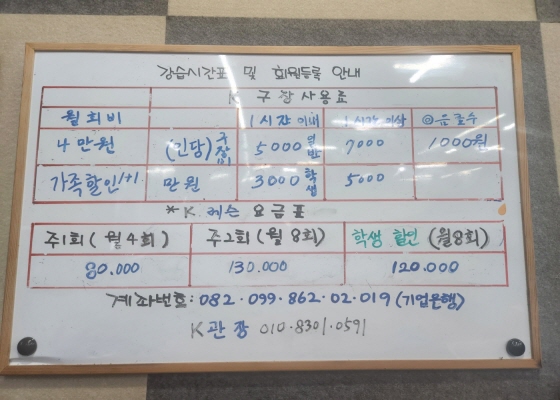 강습시간표 및 회원등록 안내
K 구장사용료
월 회비 1시간 이내 1시간 이상 ◎음료수
4만원 (인당) 구장비 5000 일반 7000 1000원
가족할인 1+1 만원 3000 학생 5000
*K 레슨 요금표
주1회 (월4회) 주2회 (월8회) 학생 할인 (월8회)
80.000 130.000 120.000
계좌번호: 082·099·862·02·019 (기업은행)
K관장 010·8301·0591